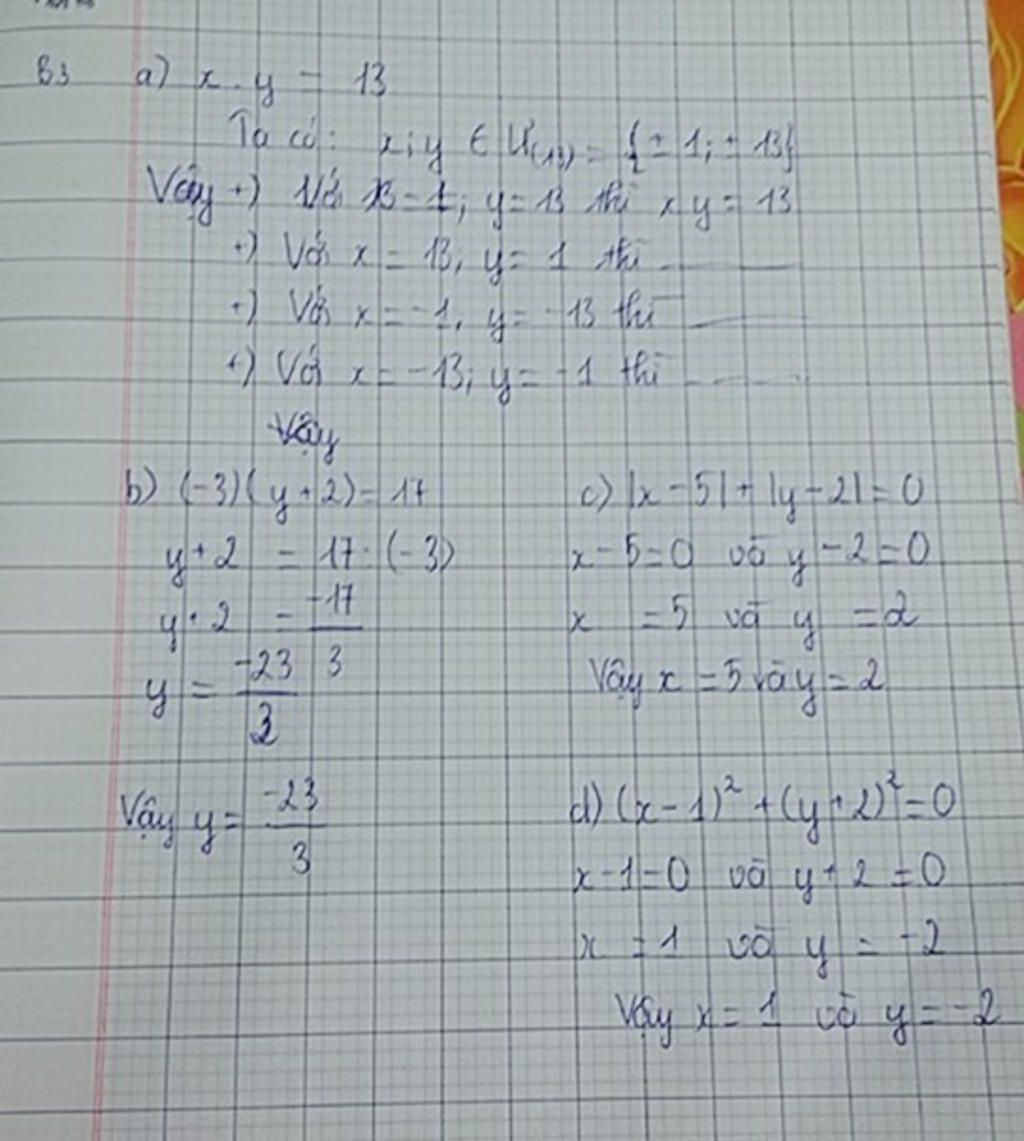 B3 a) x . y = 13
Ta có: x; y ∈ Ư(13) = {± 1; ± 13}
Vậy +) Với x = 1; y = 13 thì x y = 13
+) Với x = 13, y = 1 thì
+) Với x = -1, y = -13 thì
+) Với x = -13; y = -1 thì
Vậy
b) (-3)(y + 2) = 17
y + 2 = 17 : (-3)
y + 2 = -17/3
y = -23/3
Vậy y = -23/3
c) |x - 5| + |y - 2| = 0
x - 5 = 0 và y - 2 = 0
x = 5 và y = 2
Vậy x = 5 và y = 2
d) (x - 1)² + (y + 2)² = 0
x - 1 = 0 và y + 2 = 0
x = 1 và y = -2
Vậy x = 1 và y = -2